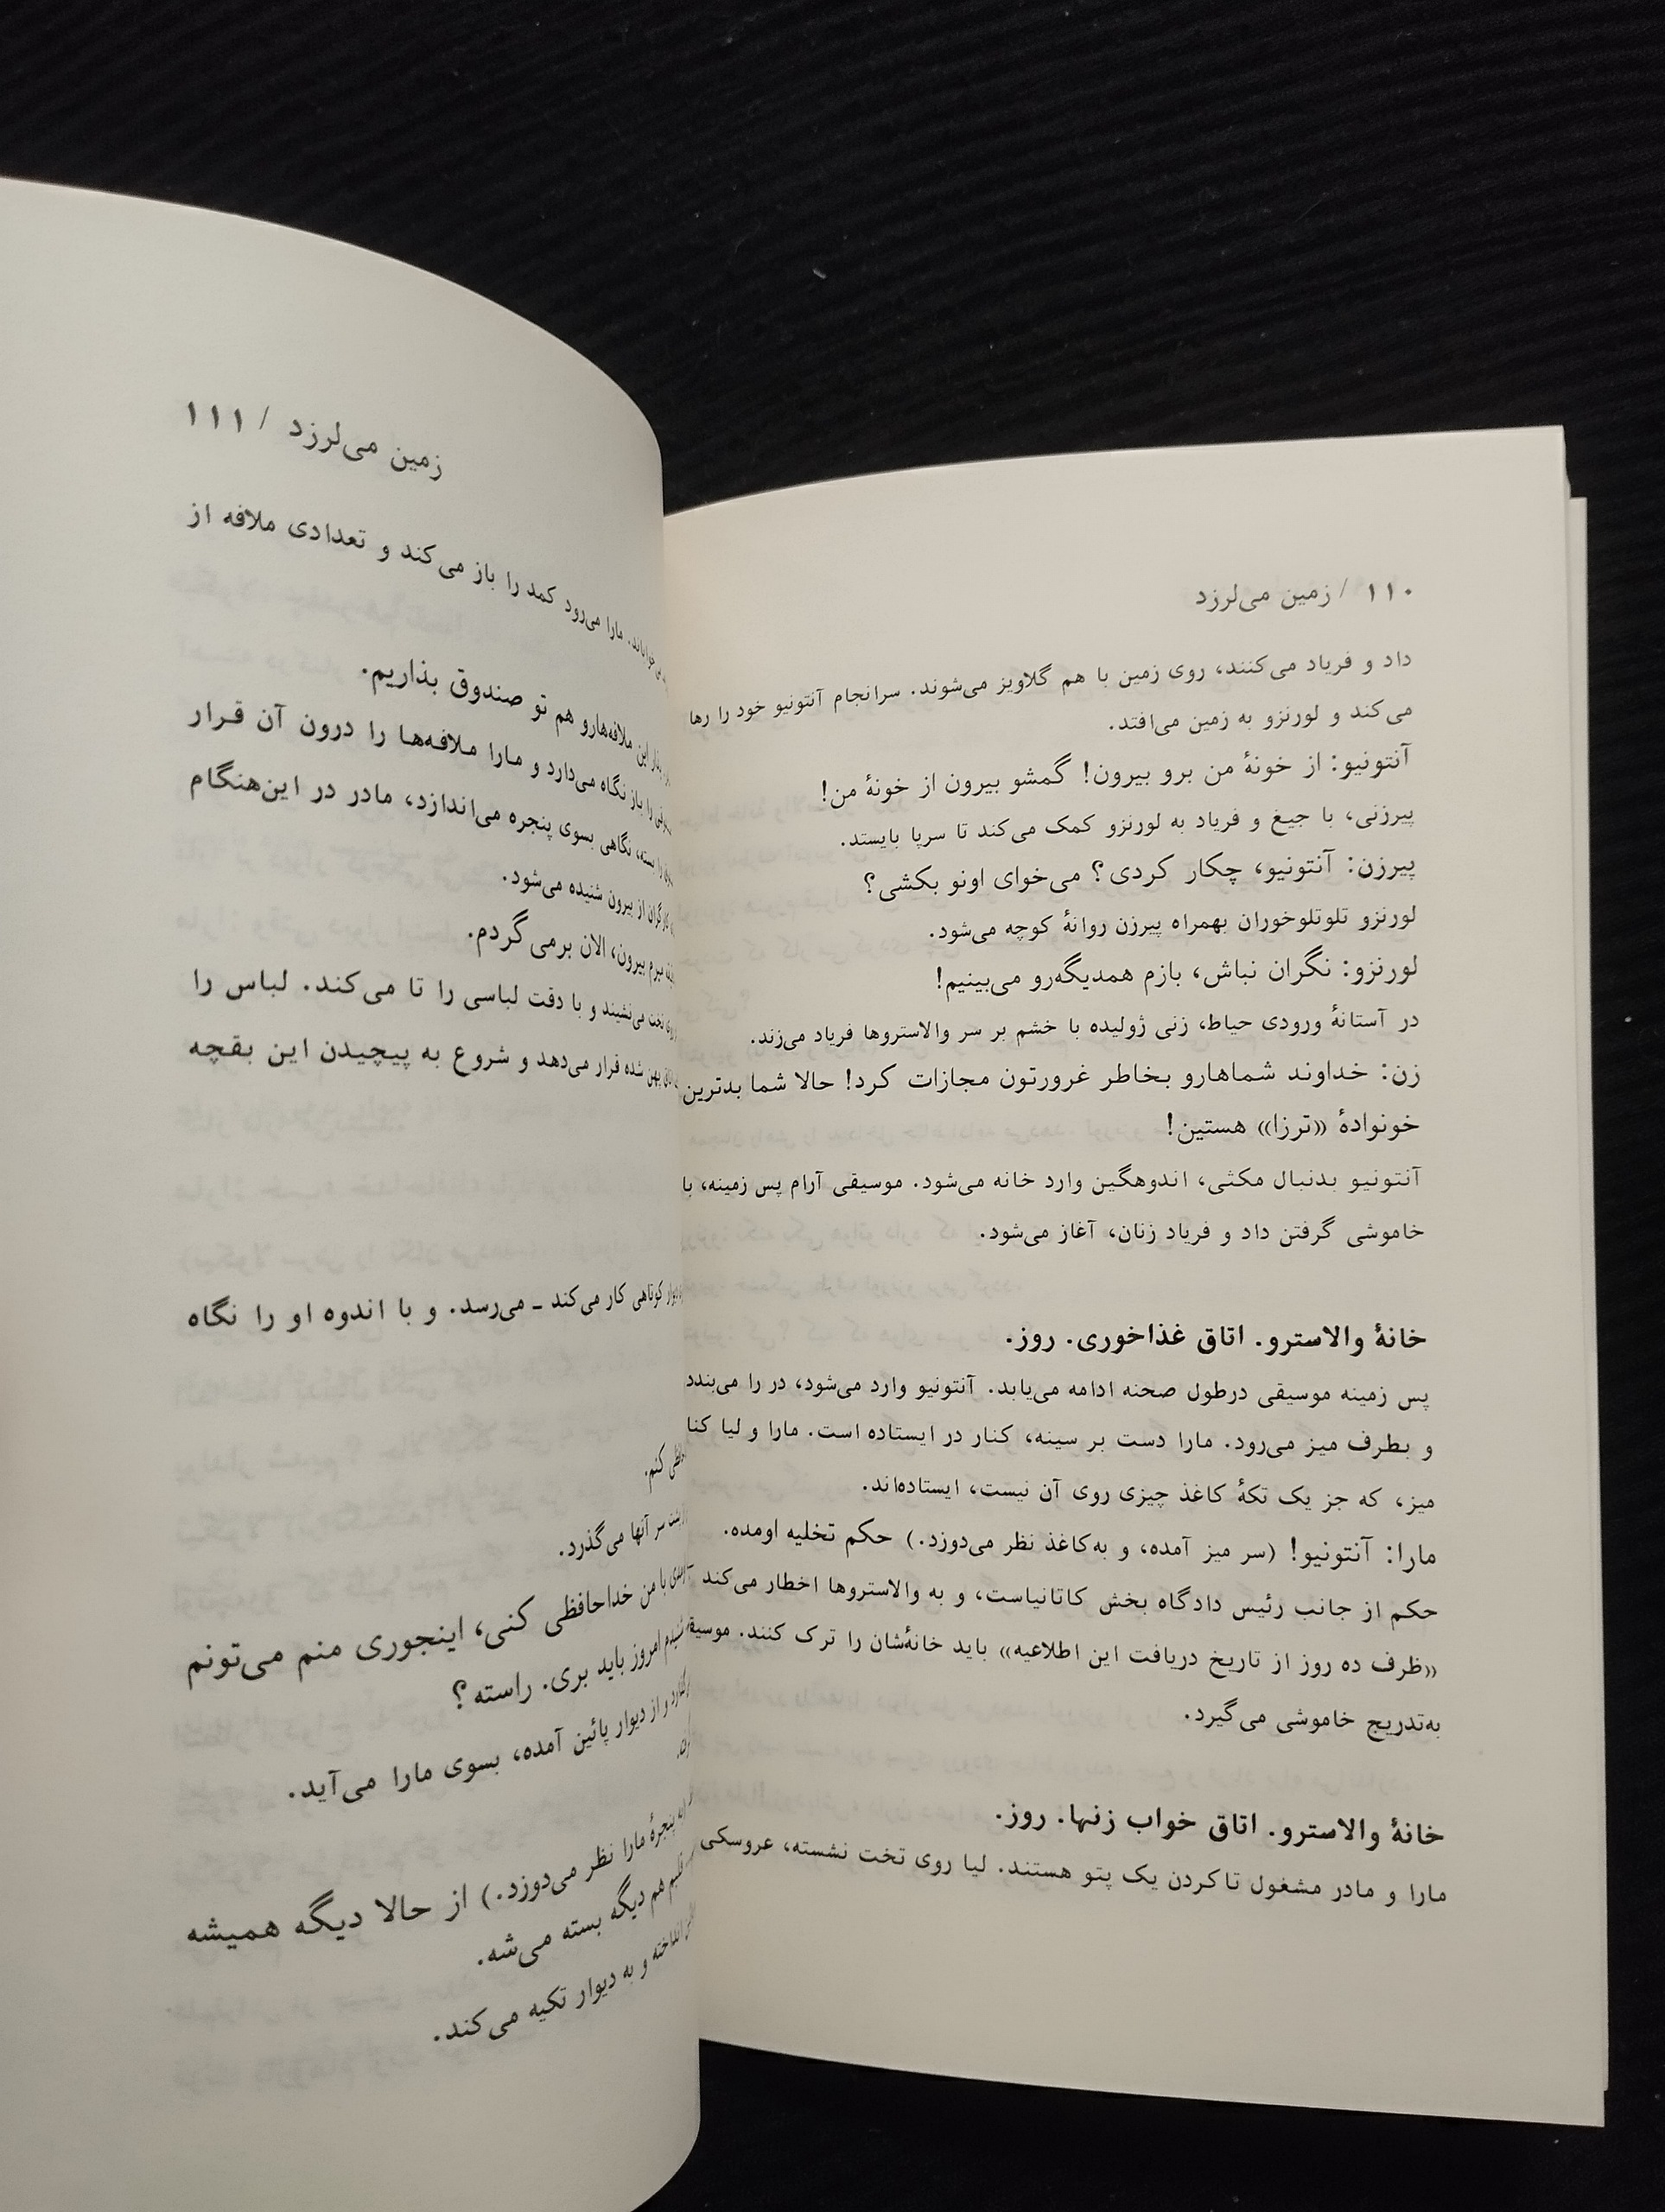 ۱۱۰ / زمین می‌لرزد
داد و فریاد می‌کنند، روی زمین با هم گلاویز می‌شوند. سرانجام آنتونیو خود را رها
می‌کند و لورنزو به زمین می‌افتد.
آنتونیو: از خونهٔ من برو بیرون! گمشو بیرون از خونهٔ من!
پیرزنی، با جیغ و فریاد به لورنزو کمک می‌کند تا سرپا بایستد.
پیرزن: آنتونیو، چکار کردی؟ می‌خوای اونو بکشی؟
لورنزو تلوتلوخوران بهمراه پیرزن روانهٔ کوچه می‌شود.
لورنزو: نگران نباش، بازم همدیگه‌رو می‌بینیم!
در آستانهٔ ورودی حیاط، زنی ژولیده با خشم بر سر والاستروها فریاد می‌زند.
زن: خداوند شماهارو بخاطر غرورتون مجازات کرد! حالا شما بدترین
خونوادهٔ «ترزا» هستین!
آنتونیو بدنبال مکثی، اندوهگین وارد خانه می‌شود. موسیقی آرام پس زمینه، با
خاموشی گرفتن داد و فریاد زنان، آغاز می‌شود.
خانهٔ والاسترو. اتاق غذاخوری. روز.
پس زمینه موسیقی درطول صحنه ادامه می‌یابد. آنتونیو وارد می‌شود، در را می‌بندد
و بطرف میز می‌رود. مارا دست بر سینه، کنار در ایستاده است. مارا و لیا کنا
میز، که جز یک تکهٔ کاغذ چیزی روی آن نیست، ایستاده‌اند.
مارا: آنتونیو! (سر میز آمده، و به‌کاغذ نظر می‌دوزد.) حکم تخلیه اومده.
حکم از جانب رئیس دادگاه بخش کاتانیاست، و به والاستروها اخطار می‌کند
«ظرف ده روز از تاریخ دریافت این اطلاعیه» باید خانه‌شان را ترک کنند. موسیق
به‌تدریج خاموشی می‌گیرد.
خانهٔ والاسترو. اتاق خواب زنها. روز.
مارا و مادر مشغول تاکردن یک پتو هستند. لیا روی تخت نشسته، عروسکی
زمین می‌لرزد / ۱۱۱
مارا می‌رود کمد را باز می‌کند و تعدادی ملافه از
این ملافه‌هارو هم تو صندوق بذاریم.
را باز نگاه می‌دارد و مارا ملافه‌ها را درون آن قرار
را بسته، نگاهی بسوی پنجره می‌اندازد، مادر در این‌هنگام
کارگران از بیرون شنیده می‌شود.
میرم بیرون، الان برمی‌گردم.
تخت می‌نشیند و با دقت لباسی را تا می‌کند. لباس را
پهن شده قرار می‌دهد و شروع به پیچیدن این بقچه
دیوار کوتاهی کار می‌کند ـ می‌رسد. و با اندوه او را نگاه
کنم.
پشت سر آنها می‌گذرد.
با من خداحافظی کنی، اینجوری منم می‌تونم
امروز باید بری. راسته؟
و از دیوار پائین آمده، بسوی مارا می‌آید.
به پنجرهٔ مارا نظر می‌دوزد.) از حالا دیگه همیشه
هم دیگه بسته می‌شه.
انداخته و به دیوار تکیه می‌کند.